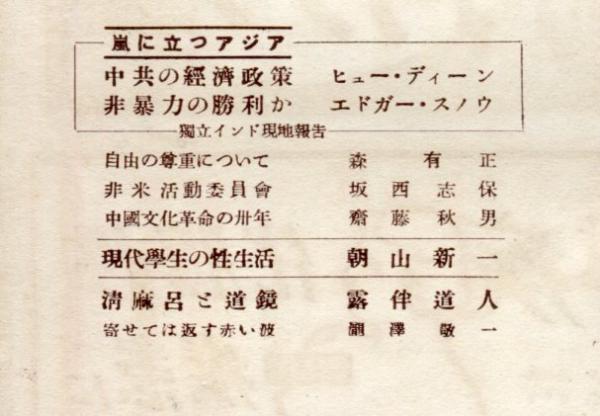 嵐に立つアジア
中共の經濟政策 ヒュー・ディーン
非暴力の勝利か エドガー・スノウ
獨立インド現地報告
自由の尊重について 森有正
非米活動委員會 坂西志保
中國文化革命の卅年 齋藤秋男
現代學生の性生活 朝山新一
淸麻呂と道鏡 露伴道人
寄せては返す赤い波 瀧澤敬一